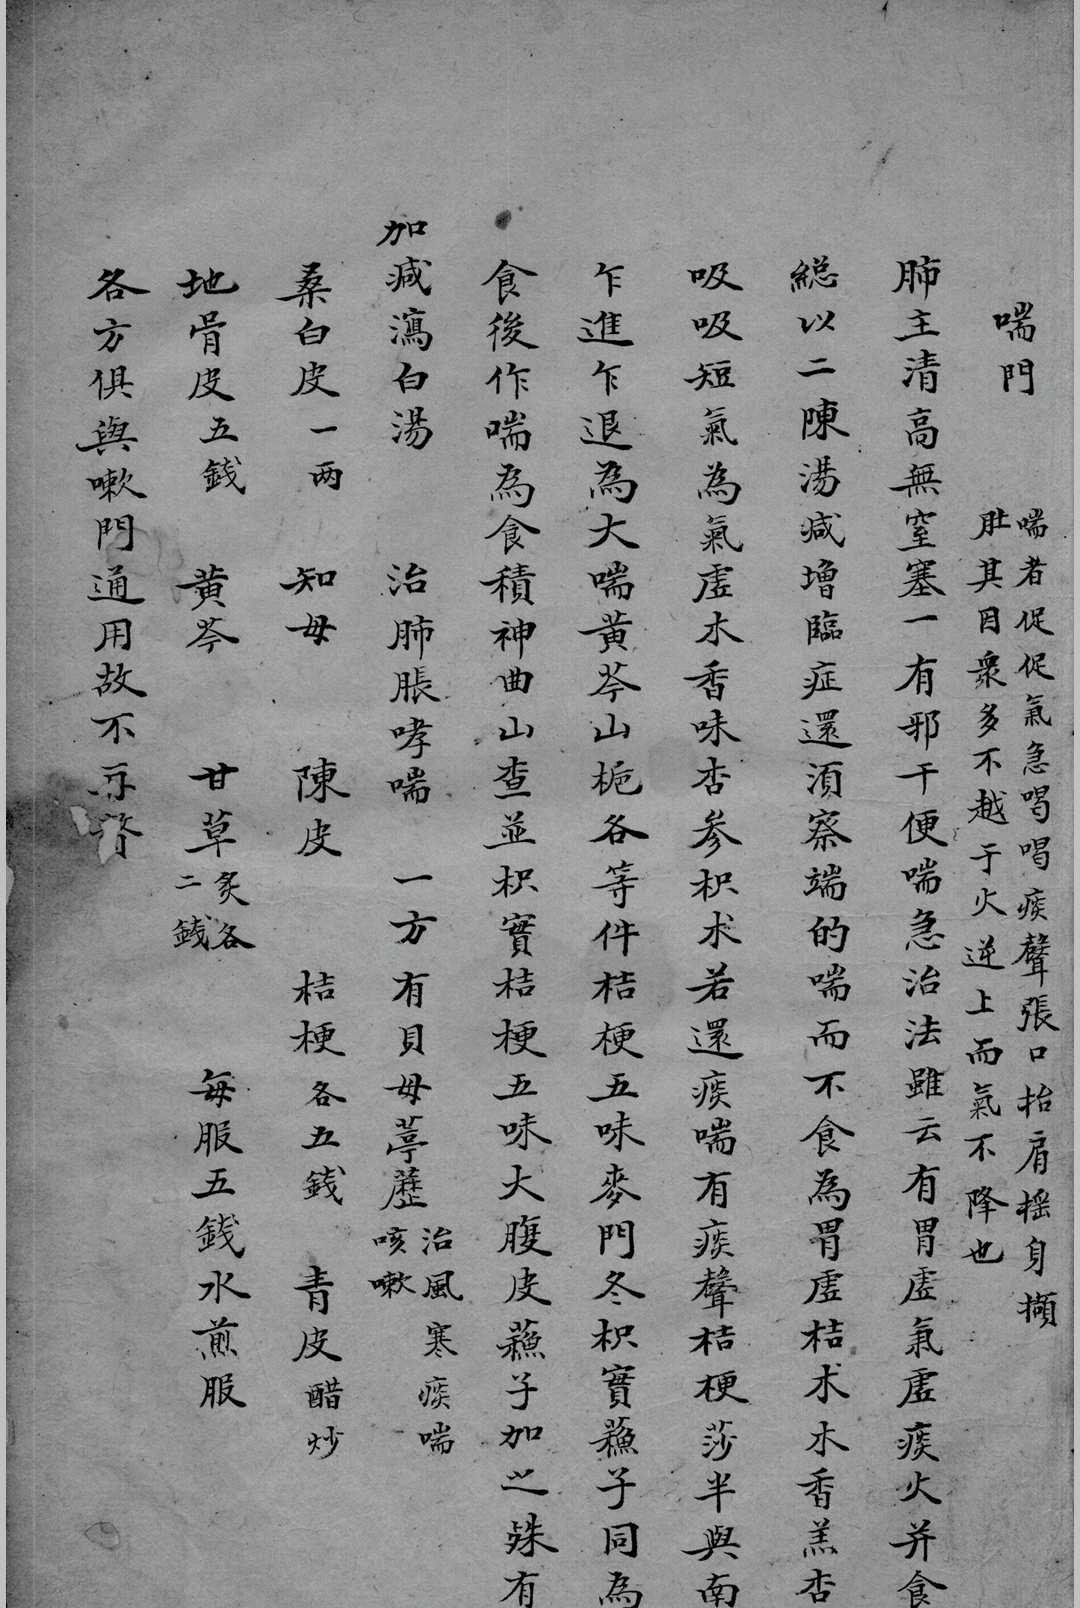 喘門
喘者促促氣急喝喝痰聲張口抬肩搖身擷
肚其目衆多不越于火逆上而氣不降也
肺主清高無窒塞一有邪干便喘急治法雖云有胃虛氣虛痰火并食
総以二陳湯減增臨症還湏察端的喘而不食為胃虛桔术木香羔杏
吸吸短氣為氣虛木香味杏参枳术若還痰喘有痰聲桔梗莎半與南
乍進乍退為大喘黄芩山梔各等件桔梗五味麥門冬枳實蘓子同為
食後作喘為食積神曲山查並枳實桔梗五味大腹皮蘓子加之殊有
加減瀉白湯　治肺脹哮喘　一方有貝母葶藶　治風寒痰喘咳嗽
桑白皮一两　知母　陳皮　桔梗各五錢　青皮醋炒
地骨皮五錢　黄芩　甘草炙各二錢　每服五錢水煎服
各方俱與嗽門通用故不再